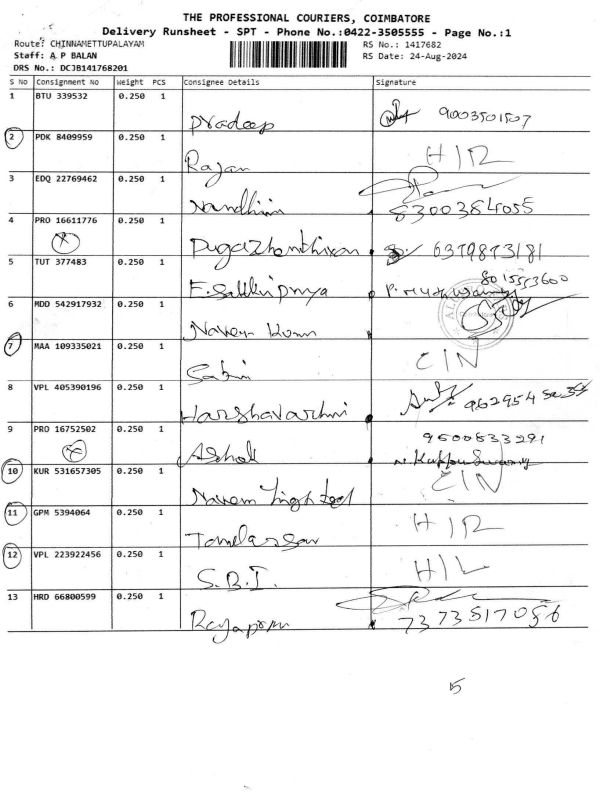 THE PROFESSIONAL COURIERS, COIMBATORE
Delivery Runsheet - SPT - Phone No.:0422-3505555 - Page No.:1
Route: CHINNAMETTUPALAYAM RS No.: 1417682
Staff: A P BALAN RS Date: 24-Aug-2024
DRS No.: DCJB141768201
S No Consignment No Weight PCS Consignee Details Signature
1 BTU 339532 0.250 1
Pradeep 9003501507
2 PDK 8409959 0.250 1
Rajan H/R
3 EDQ 22769462 0.250 1
Nandhini 8300384055
4 PRO 16611776 0.250 1
Pugazhenthiran 6379873181
5 TUT 377483 0.250 1
8015553600
6 MDD 542917932 0.250 1
Naveen
7 MAA 109335021 0.250 1
C/N
8 VPL 405390196 0.250 1
Harshavardhni
9 PRO 16752502 0.250 1
9600833291
Ashok
10 KUR 531657305 0.250 1
C/N
11 GPM 5394064 0.250 1
H/R
12 VPL 223922456 0.250 1
S.B.I. H/L
13 HRD 66800599 0.250 1
7373517056
15